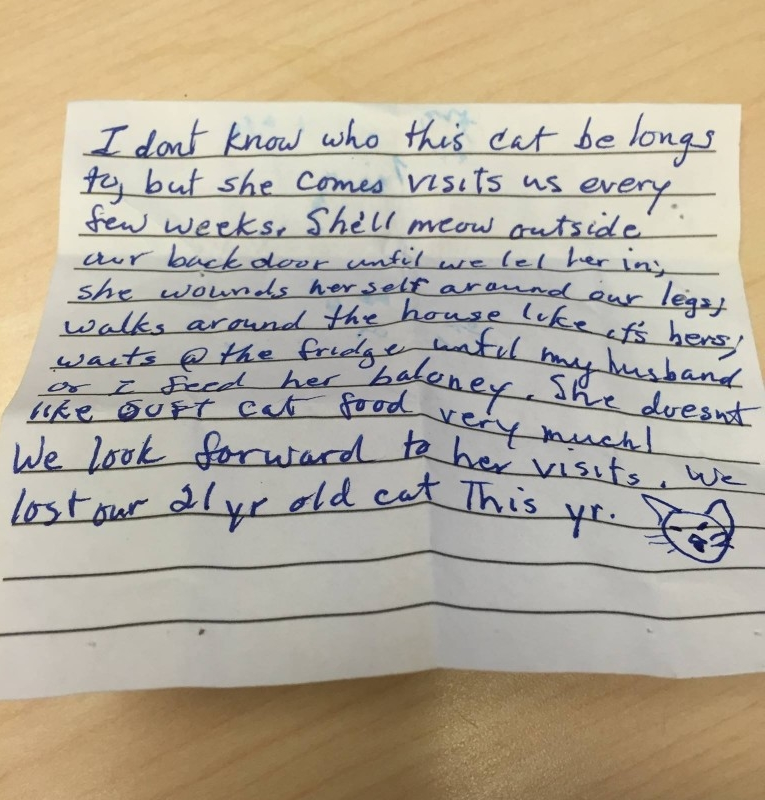 I dont know who this cat belongs
to, but she comes visits us every
few weeks. She'll meow outside
our back door until we let her in;
she wounds herself around our legs;
walks around the house like it's hers;
waits @ the fridge until my husband
or I feed her baloney. She doesnt
like cat food very much!
We look forward to her visits. We
lost our 21 yr old cat This yr.